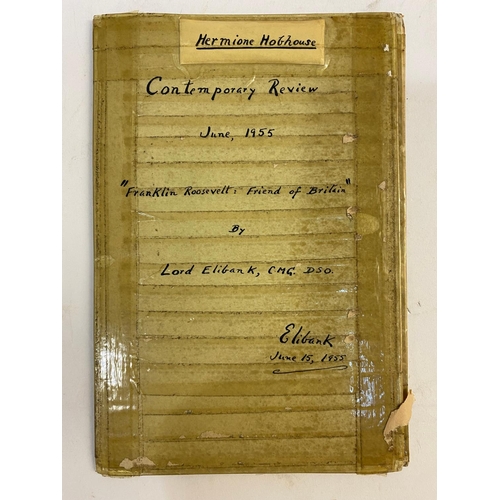 Hermione Hobhouse
Contemporary Review
June, 1955
"Franklin Roosevelt: Friend of Britain"
By
Lord Elibank, CMG. DSO.
Elibank
June 15, 1955